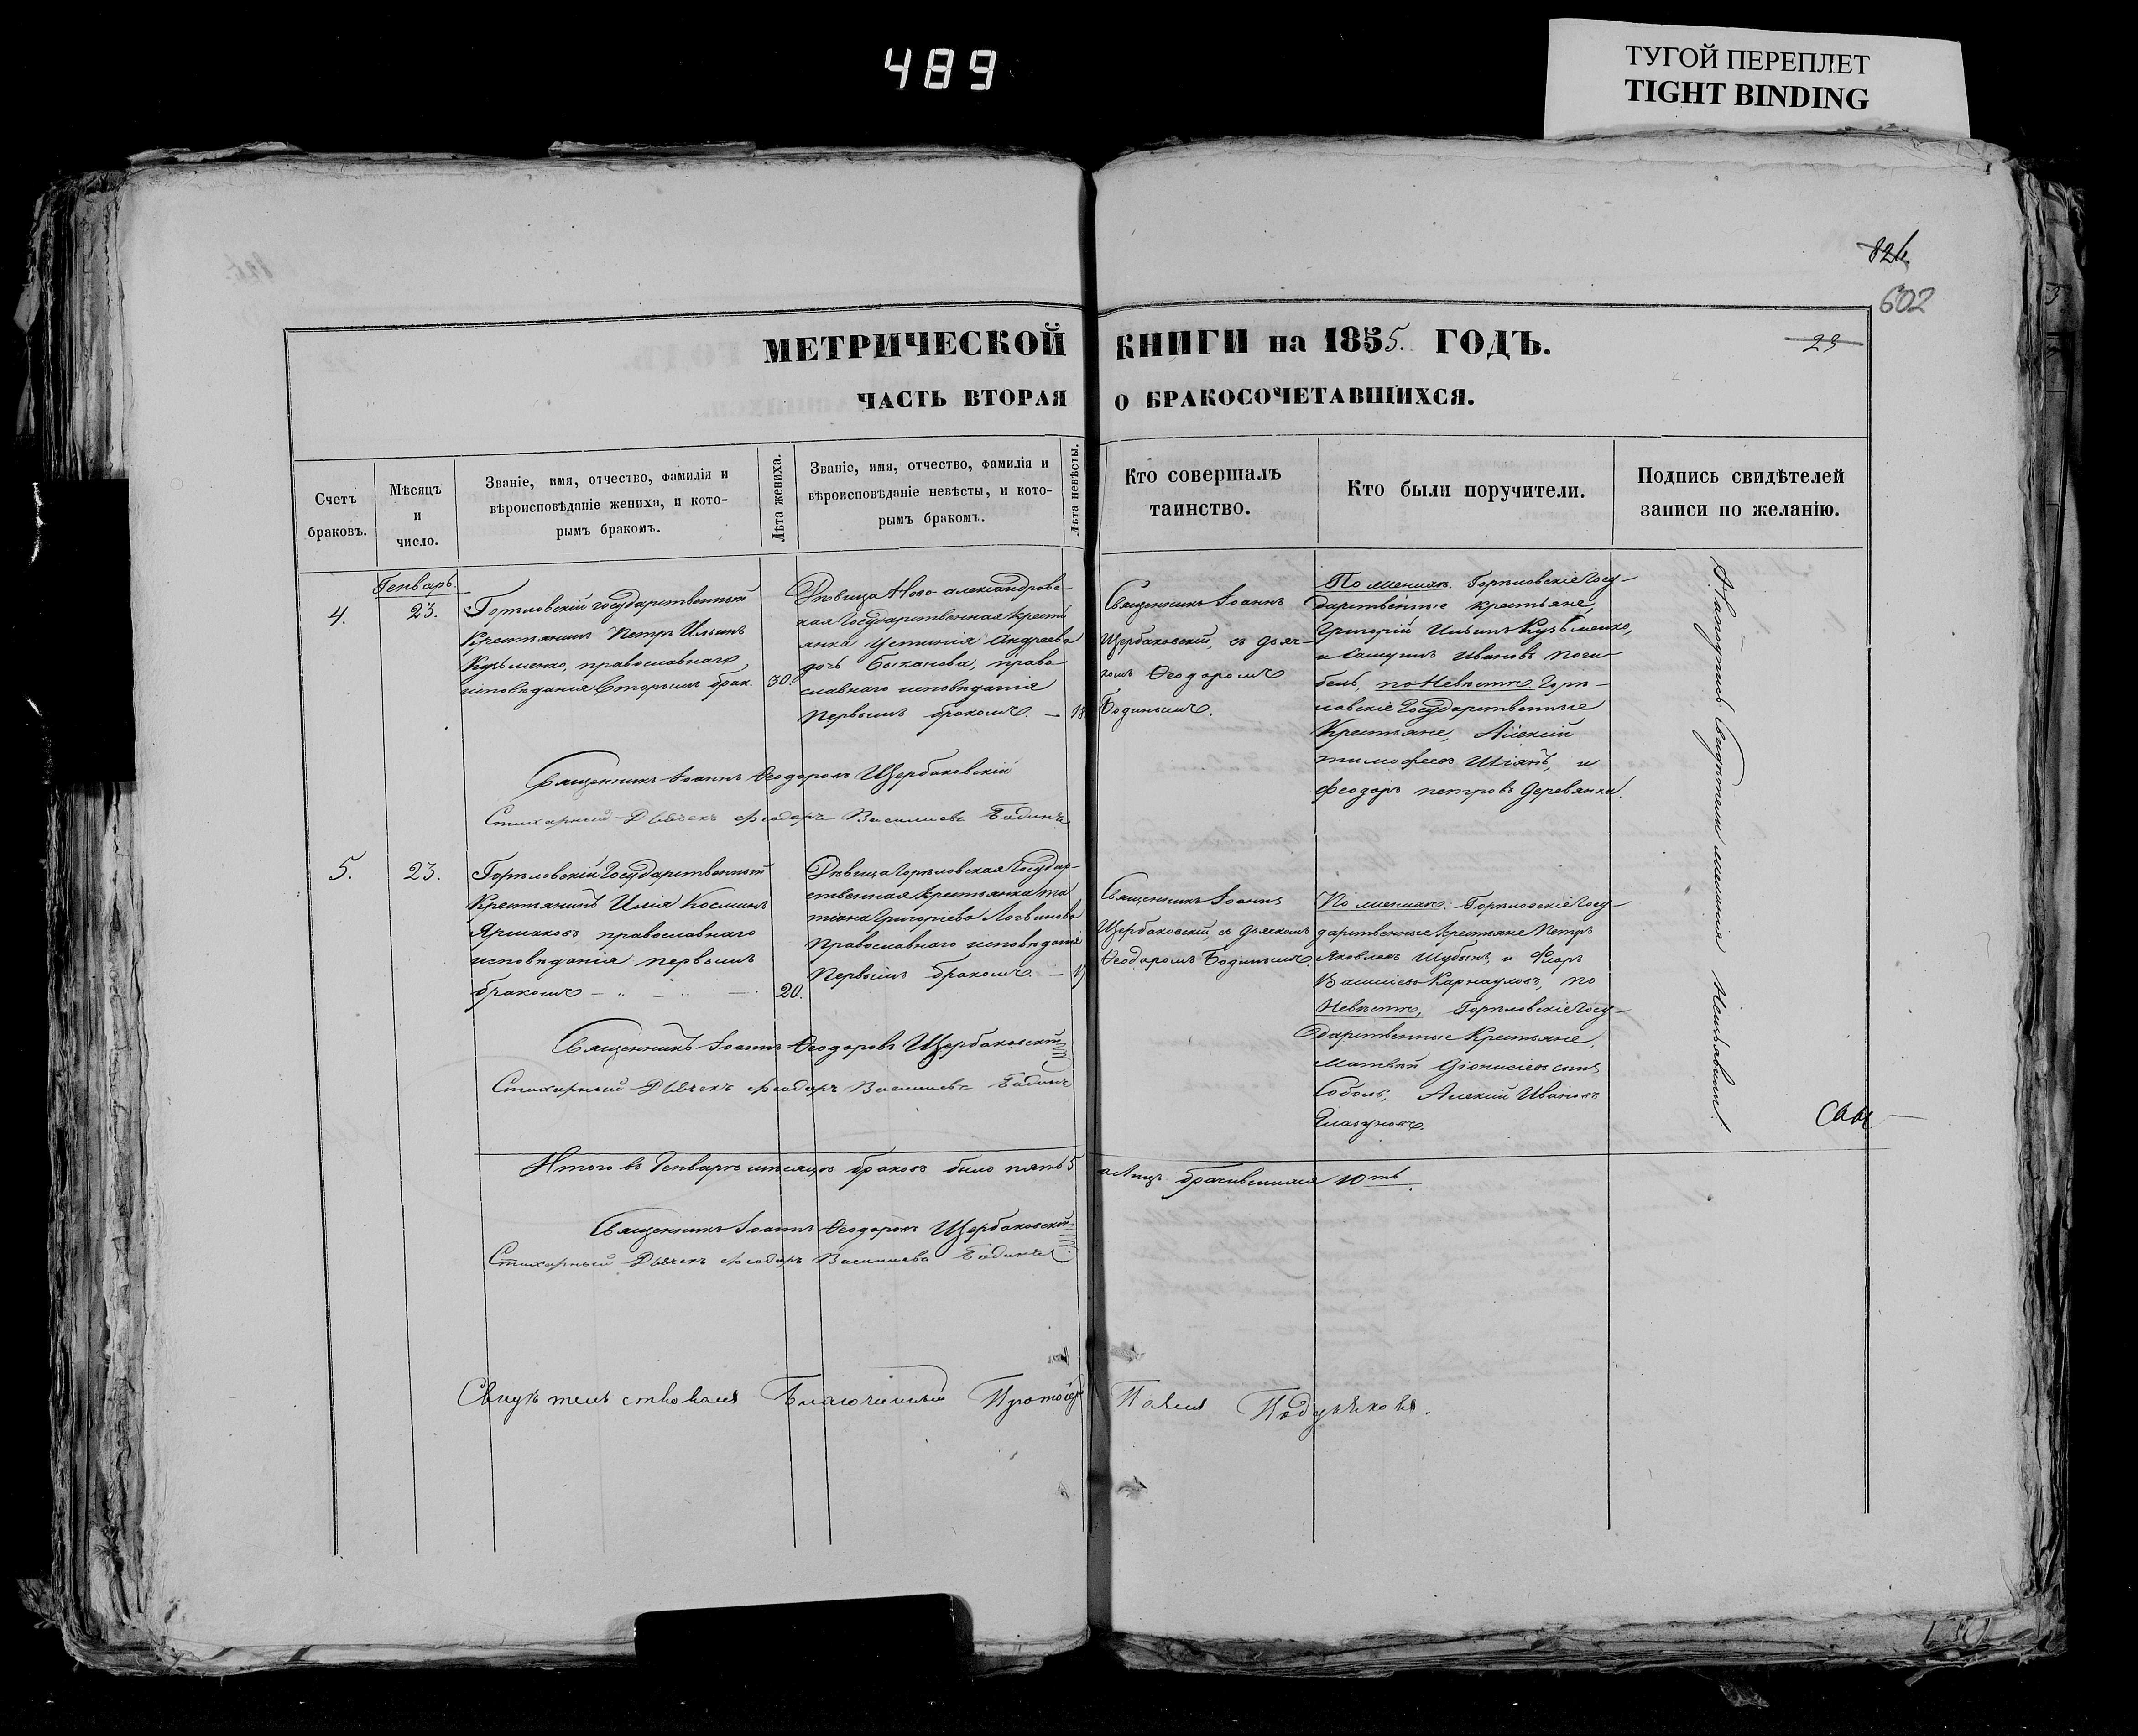 489
ТУГОЙ ПЕРЕПЛЕТ
TIGHT BINDING
602
29
МЕТРИЧЕСКОЙ КНИГИ на 1855. ГОДЪ.
ЧАСТЬ ВТОРАЯ О БРАКОСОЧЕТАВШИХСЯ.
Счетъ браковъ.
Мѣсяцъ и число.
Званіе, имя, отчество, фамилія и
вѣроисповѣданіе жениха, и кото-
рымъ бракомъ.
Лѣта жениха.
Званіе, имя, отчество, фамилія и
вѣроисповѣданіе невѣсты, и кото-
рымъ бракомъ.
Лѣта невѣсты.
Кто совершалъ
таинство.
Кто были поручители.
Подпись свидѣтелей
записи по желанію.
Генварь.
4.
23.
Горѣловскій государственный
Крестьянинъ Петръ Ильинъ
Кузьменко, православнаго
исповѣданія вторымъ брак.
30.
Дѣвица Ново-александровс-
кая Государственная кресть
янка Устинія Андреева
дочь Быканова, право
славнаго исповѣданія
первымъ бракомъ. — 18
Священникъ Іоаннъ
Щербаковскій, съ дьяч-
комъ Ѳеодоромъ
Бодинымъ.
По женихѣ. Горѣловскіе Госу-
дарственные крестьяне,
Григорій Ильинъ Кузьменко,
и Самуилъ Ивановъ Поги-
бель, по Невѣстѣ Горѣ-
ловскіе Государственные
Крестьяне, Алекій
тимофеевъ Шіянъ, и
феодоръ петровъ Деревянка.
Священникъ Іоаннъ Ѳеодоровъ Щербаковскій
Стихарный Дьячекъ Феодоръ Василиевъ Бодинъ
5.
23.
Горѣловскій Государственный
Крестьянинъ Илія Косминъ
Ярмаковъ православнаго
исповѣданія первымъ
бракомъ
20.
Дѣвица Горѣловская Государ-
ственная крестьянка та
тіана Григоріева Логвинова
Православнаго исповѣданія
Первымъ бракомъ. —
Священникъ Іоаннъ
Щербаковскій, съ дьячкомъ
Ѳеодоромъ Бодинымъ.
По женихѣ. Горѣловскіе Госу-
дарственные крестьяне Петръ
Яковлевъ Шубынъ, и Флоръ
Василіевъ Карнауховъ, по
Невѣстѣ, Горѣловскіе Госу-
дарственные Крестьяне,
Матвѣй Діонисіевъ сынъ
Соболь, Алекій Ивановъ
Глазуновъ.
А на подпись Свидѣтели желанія Неизъявили.
Священникъ Іоаннъ Ѳеодоровъ Щербаковскій
Стихарный Дьячекъ Феодоръ Василиевъ Бодинъ
Итого въ Генварѣ мѣсяцѣ браковъ было пять 5 а лицъ брачившихся 10ть.
Священникъ Іоаннъ Ѳеодоровъ Щербаковскій
Стихарный Дьячекъ Феодоръ Василиевъ Бодинъ
Свидѣтельствовалъ Благочинный Протоіер Павелъ